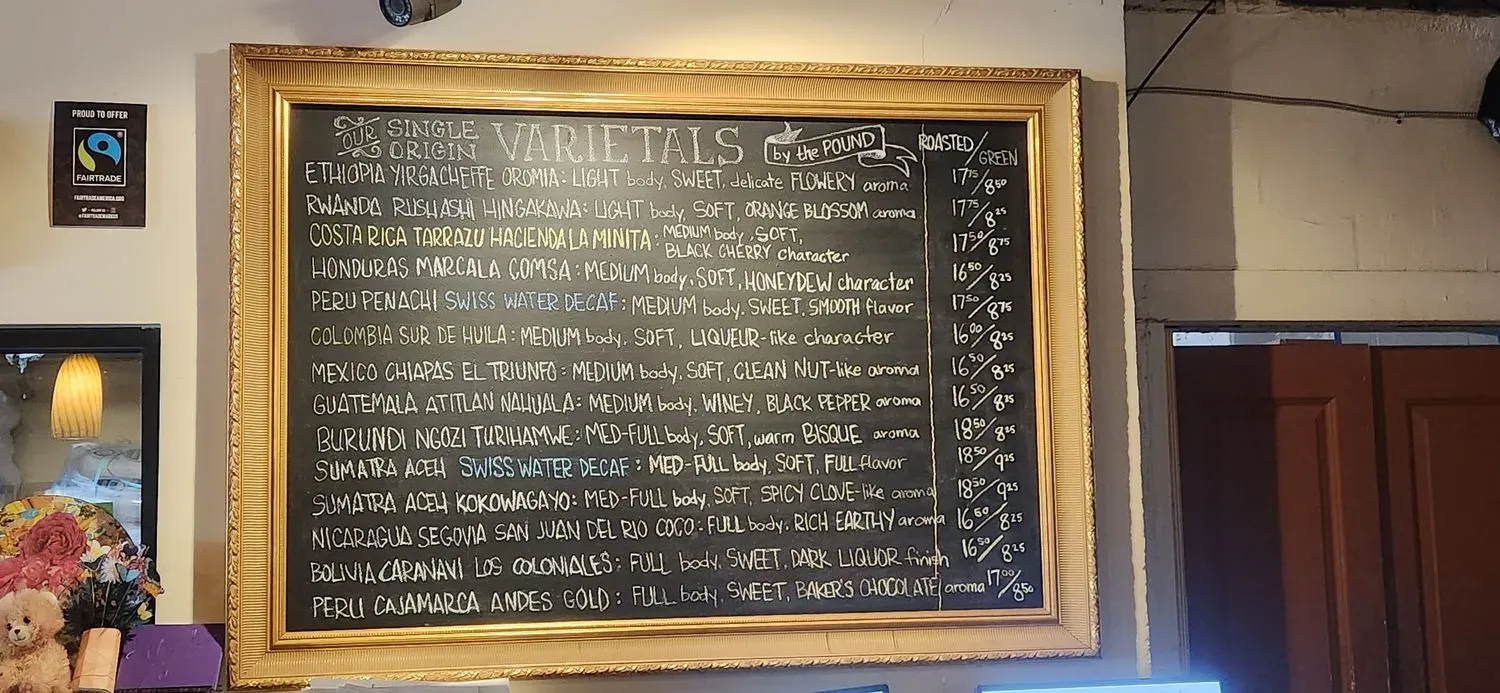 PROUD TO OFFER
FAIRTRADE
FAIRTRADEAMERICA.ORG
OUR SINGLE ORIGIN VARIETALS by the POUND ROASTED/GREEN
ETHIOPIA YIRGACHEFFE OROMIA: LIGHT body, SWEET, delicate FLOWERY aroma 17⁷⁵/8⁵⁰
RWANDA RUSHASHI HINGAKAWA: LIGHT body, SOFT, ORANGE BLOSSOM aroma 17⁷⁵/8²⁵
COSTA RICA TARRAZU HACIENDA LA MINITA: MEDIUM body, SOFT, 17⁵⁰/8⁷⁵
BLACK CHERRY character
HONDURAS MARCALA COMSA: MEDIUM body, SOFT, HONEYDEW character 16⁵⁰/8²⁵
PERU PENACHI SWISS WATER DECAF: MEDIUM body, SWEET, SMOOTH flavor 17⁵⁰/8⁷⁵
COLOMBIA SUR DE HUILA: MEDIUM body, SOFT, LIQUEUR-like character 16⁰⁰/8²⁵
MEXICO CHIAPAS EL TRIUNFO: MEDIUM body, SOFT, CLEAN NUT-like aroma 16⁵⁰/8²⁵
GUATEMALA ATITLAN NAHUALA: MEDIUM body, WINEY, BLACK PEPPER aroma 16⁵⁰/8²⁵
BURUNDI NGOZI TURIHAMWE: MED-FULL body, SOFT, warm BISQUE aroma 18⁵⁰/8²⁵
SUMATRA ACEH SWISS WATER DECAF: MED-FULL body, SOFT, FULL flavor 18⁵⁰/9²⁵
SUMATRA ACEH KOKOWAGAYO: MED-FULL body, SOFT, SPICY CLOVE-like aroma 18⁵⁰/9²⁵
NICARAGUA SEGOVIA SAN JUAN DEL RIO COCO: FULL body, RICH EARTHY aroma 16⁵⁰/8²⁵
BOLIVIA CARANAVI LOS COLONIALES: FULL body, SWEET, DARK LIQUOR finish 16⁵⁰/8²⁵
PERU CAJAMARCA ANDES GOLD: FULL body, SWEET, BAKER'S CHOCOLATE aroma 17⁰⁰/8⁵⁰